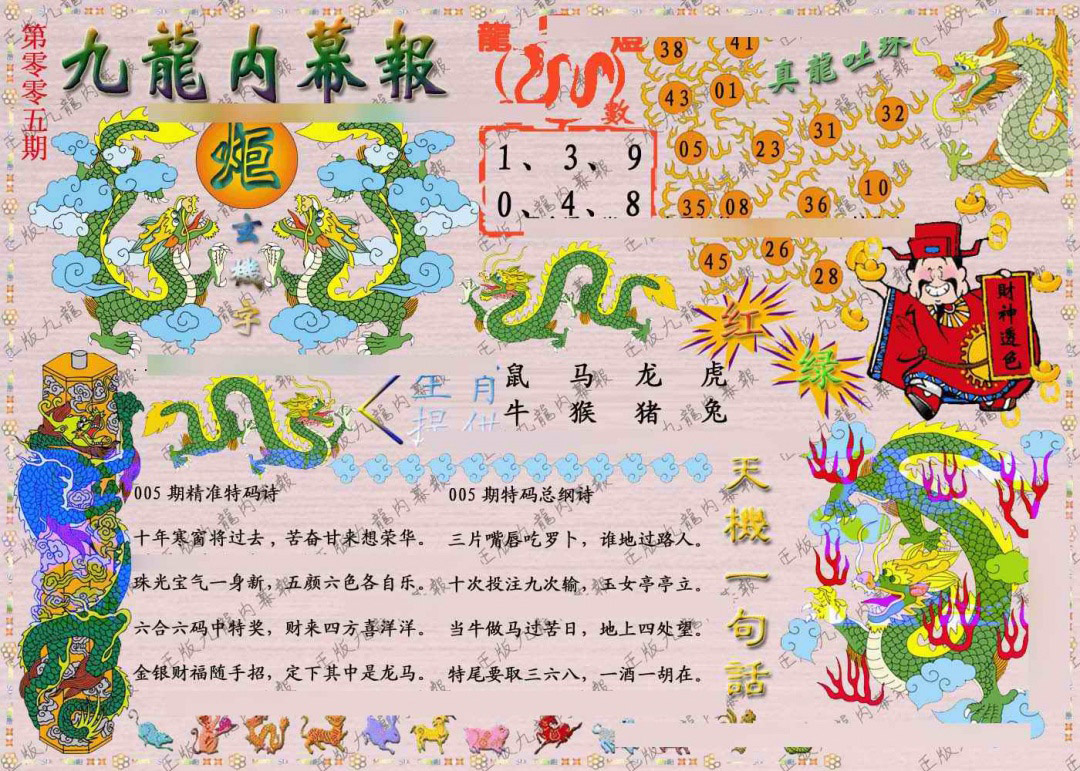 第零零五期
九龍内幕報
炬
玄機字
龍
數
1、3、9
0、4、8
真龍吐珠
38 41
43 01
31 32
05 23
35 08 36 10
45 26 28
红
绿
財神透色
生肖
提供
鼠 马 龙 虎
牛 猴 猪 兔
005期精准特码诗
十年寒窗将过去，苦奋甘来想荣华。
珠光宝气一身新，五颜六色各自乐。
六合六码中特奖，财来四方喜洋洋。
金银财福随手招，定下其中是龙马。
005期特码总纲诗
三片嘴唇吃罗卜，谁地过路人。
十次投注九次输，玉女亭亭立。
当牛做马过苦日，地上四处望。
特尾要取三六八，一酒一胡在。
天機一句話
正版九龍内幕報